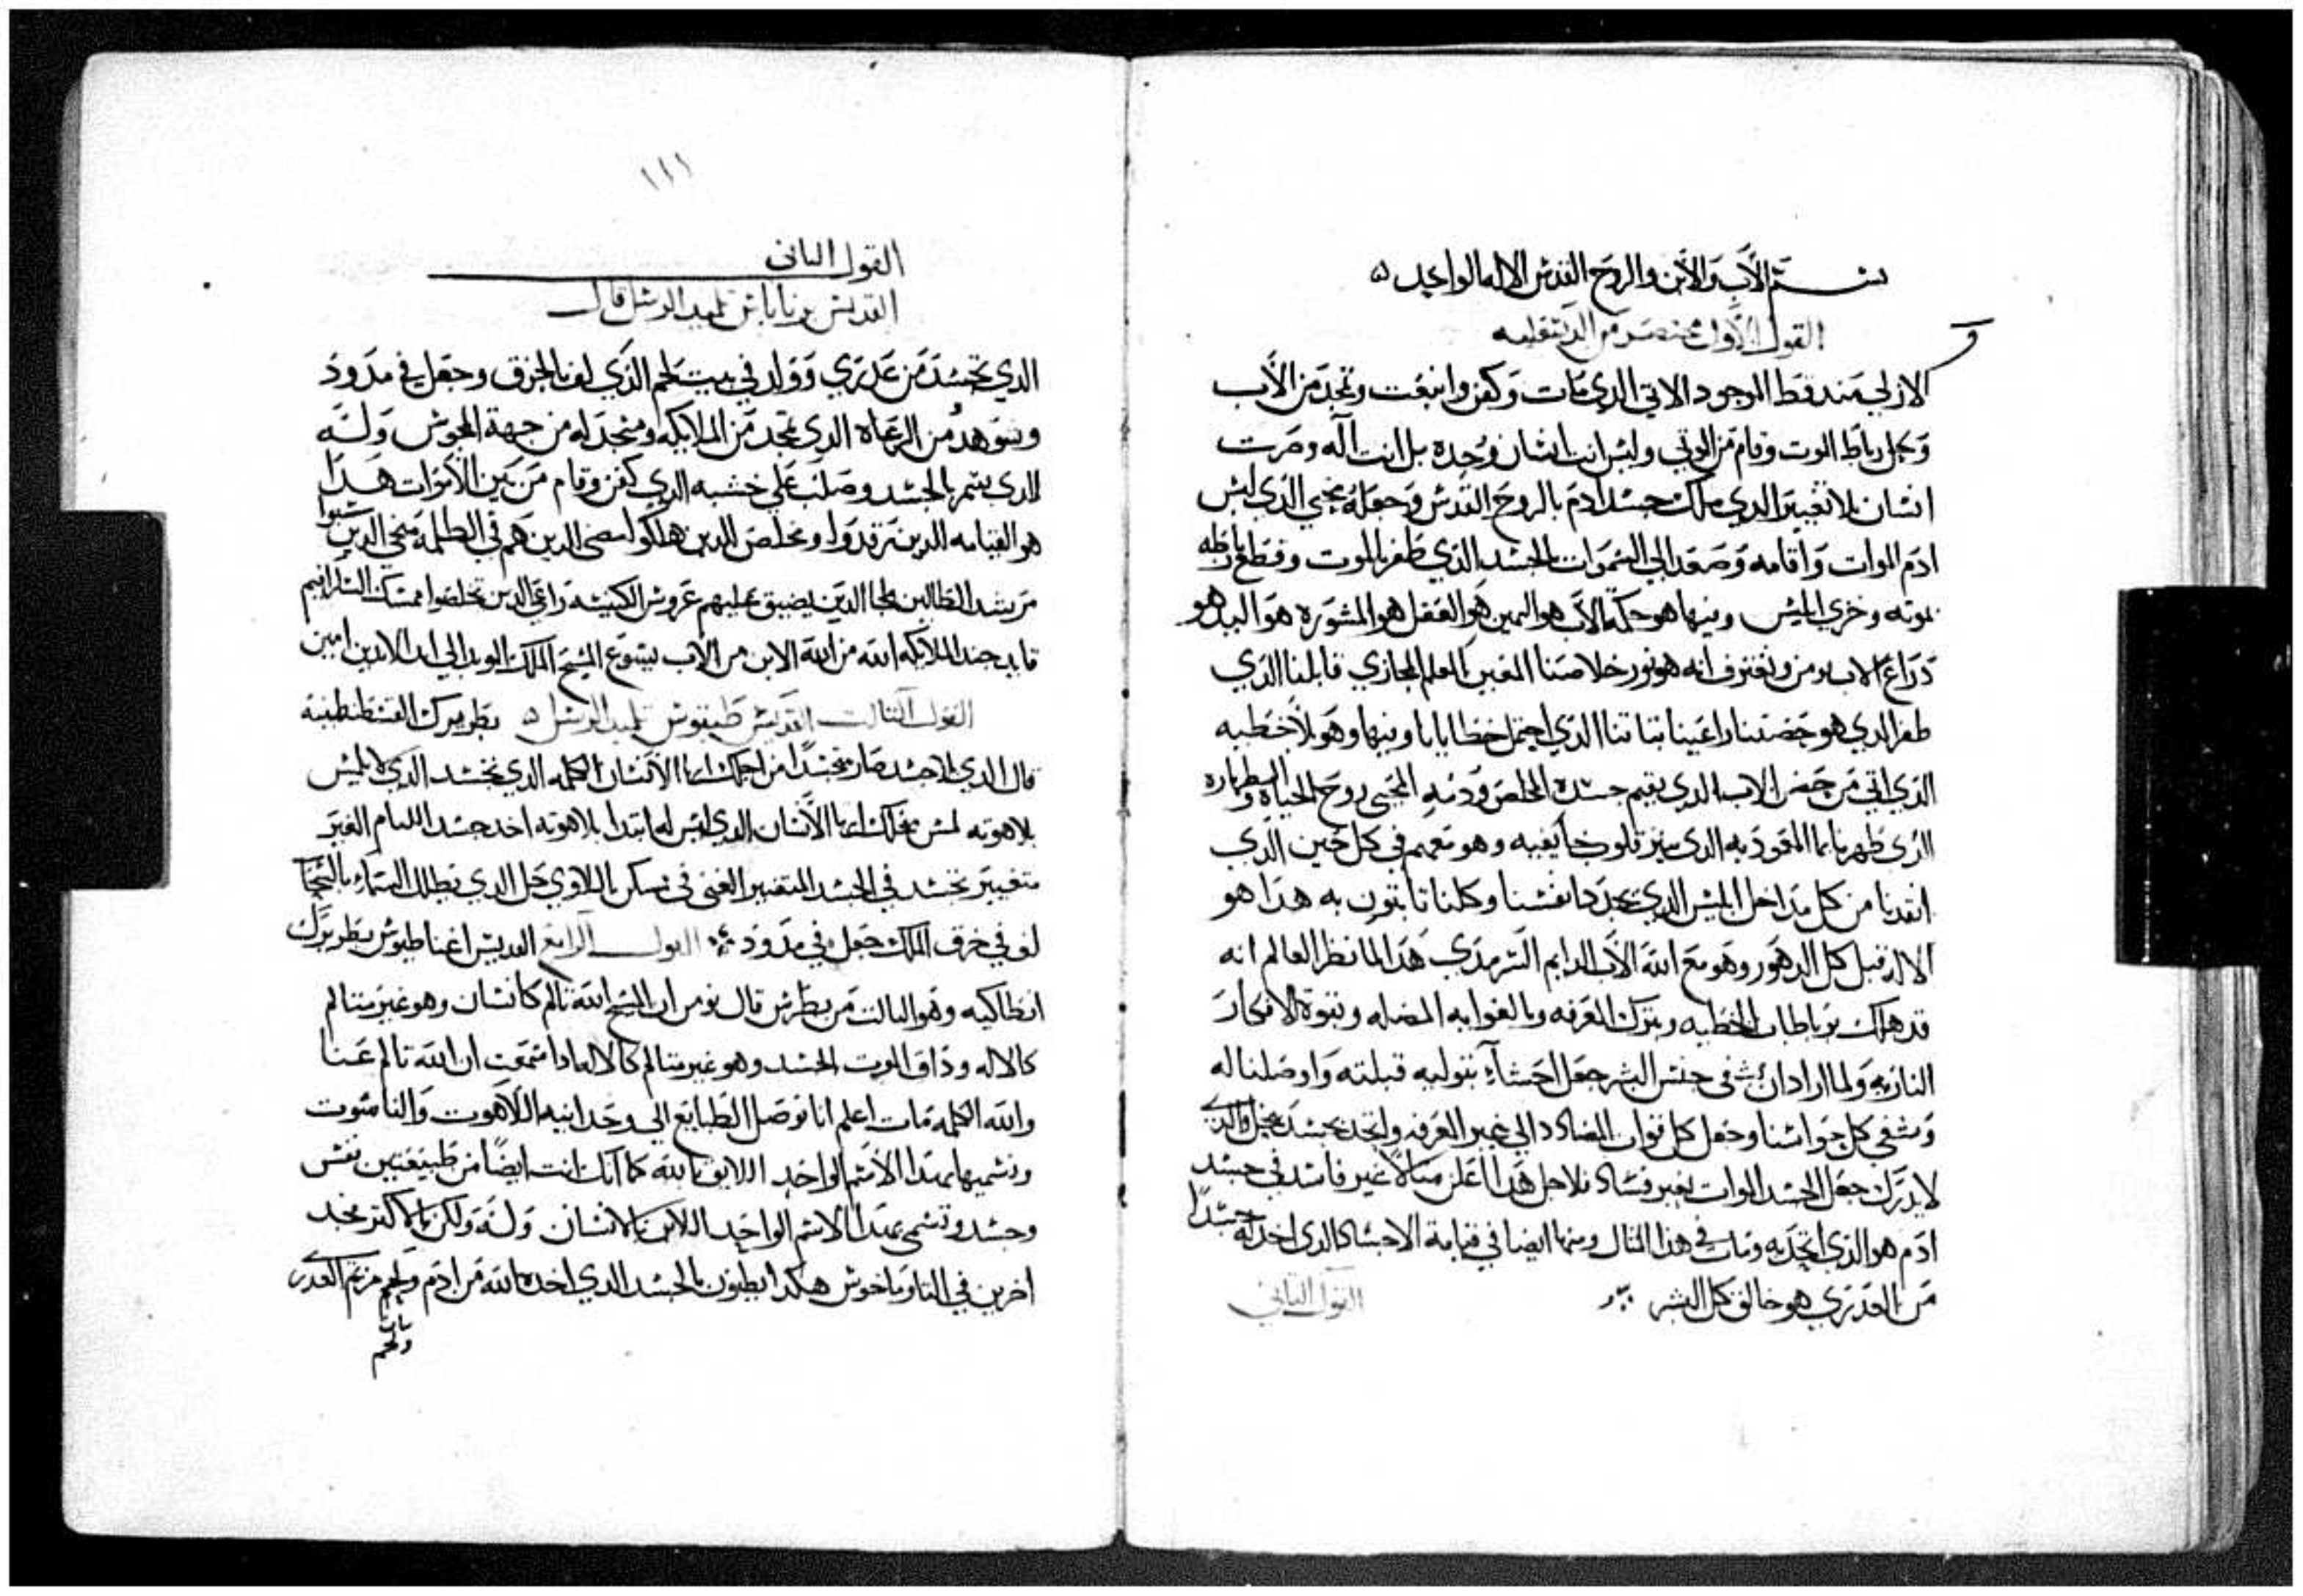 بسم الآب والابن والروح القدس الاله الواحد
القول الاول مختصر من الدسقليه
الازلي مند قط الموجود الاتي الدي مات وكفن وانبعت وتمجد من الأب
وحل رباط الموت وقام من الموتي وليس انت انسان وحده بل انت آله وصرت
انسان بلا تغيير الدي ملك جسد ادم بالروح القدس وجعله محيي الدي لبس
ادم الموات واقامه وصعد الي السموات بالجسد الدي ظفر بالموت وقطع رباطه
بموته وخزي ابليس وبنها هو حكمة الاب هو اليمين هو العقل هو المشوره هو اليد هو
دراع الاب نومن ونعترف انه هو نور خلاصنا المعين المعلم المجازي قابلنا الدي
ظفر الدي هو حصننا راعينا تباتنا الدي احتمل خطايانا وبنها وهو بلا خطيه
الدي اتي من حضن الاب الدي بقيم جسده المخلص ودمه المحيي روح الحياة والطهاره
الدي طهرنا بما المعموديه الدي ينير قلوب خايفيه وهو معهم في كل حين الدي
انقدنا من كل مداخل ابليس الدي يجدد انفسنا وكلنا تابتون به هدا هو
الاله قبل كل الدهور وهو مع الله الآب الدايم السرمدي هدا لما نظر العالم انه
قد هلك برباطات الخطيه وبترك المعرفه وبالغوايه المضله وبقوة الافكار
الناريه ولما اراد ان في جنس البشر جعل احشاء بتوليه قبلته واوصلنا له
وشفي كل حواسنا وجعل كل قوات المضاد الي غير المعرفه واتحد بجسد بحل والدي
لا يدرك جعل الجسد الموات بغير فساد فلاجل هدا اعلن متالا غير فاسد في جسد
ادم هو الدي اتحد به ومات في هدا المتال وبنها ايضا في قيامة الاجساد الدي اخد له جسدا
من العدري هو خالق كل البشر
القول التاني
١١١
القول التاني
القديس برنباس تلميد الرسل قال
الدي تجسد من عدري وولد في بيت لحم الدي لف بالخرق وجعل في مدود
وشوهد من الرعاه الدي تمجد من الملايكه وسجد له من جهة المجوس وله
الدي بشر بالجسد وصلب علي خشبه الدي كفن وقام من بين الاموات هدا
هو القيامه للدين رقدوا ومخلص الدين هلكوا مضي للدين هم في الظلمه منجي الدين سبوا
مرشد الظالين ملجا الدين يضيق عليهم عروس الكنيسه راعي الدين تخلصوا ممسك الشارافيم
قايد جند الملايكه الله من الله الابن من الاب يسوع المسيح الملك المويد الي ابد الابدين امين
القول التالت القديس طيتوس تلميد الرسل بطريرك القسطنطينيه
قال الدي بلا جسد صار متجسدا من اجلك ايها الانسان الكلمه الدي تجسد الدي لا يلمس
بلاهوته لمس من اجلك ايها الانسان الدي ليس له ابتدا بلاهوته اخد جسد التمام الغير
متغيير تجسد في الجسد المتغيير الغني في مسكن باللاوي حل الدي يظلل السماء بالسحاب
لف في خرق الملك جعل في مدود القول الرابع القديس اغناطيوس بطريرك
انطاكيه وهو التالت من بطرس قال نومن ان المسيح الله تالم كانسان وهو غير متالم
كالاله وداق الموت بالجسد وهو غير متالم كالاله ادا سمعت ان الله تالم عنا
والله الكلمه مات اعلم انا نوصل الطبايع الي وحدانيه اللاهوت والناسوت
ونسميها بهدا الاسم الواحد اللايق بالله كما انك انت ايضا من طبيعتين نفس
وجسد وتسمي بهدا الاسم الواحد اللايق بالانسان وله ولكن بالاكتر نجد
اخرين في التاوماخوس هكدا يظنون بالجسد الدي اخده الله من ادم ولحم مريم العدري
بابا
ولحم